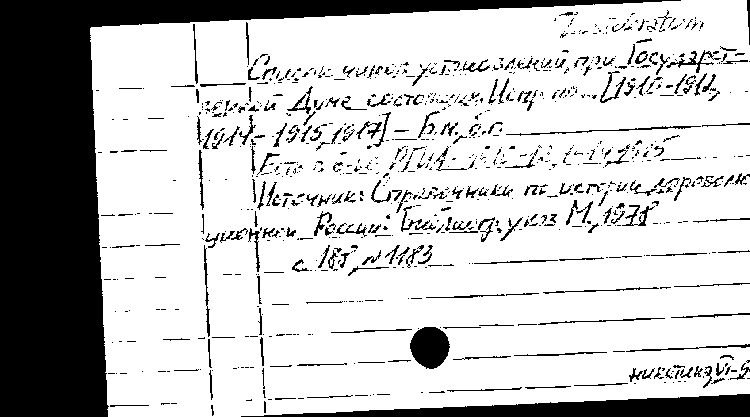 Desideratum
Список чинов установлений, при Государст-
венной Думе состоящих. Испр. по... [1910-1912,
1914 - 1915, 1917] - Б.м., б.г.
Есть в б-ке РГИА: 1915
Источник: Справочники по истории дореволю
ционной России: Библиогр. указ М., 1978
с. 188, № 1183